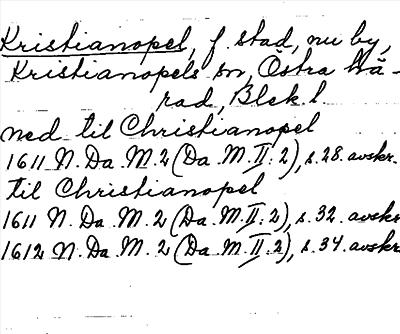 Kristianopel, f. stad, nu by,
Kristianopels sn, Östra hä-
rad, Blek. l.
ned til Christianopel
1611 N. Da. M. 2 (Da. M. II: 2), s. 28. avskr.
til Christianopel
1611 N. Da. M. 2 (Da. M. II: 2), s. 32. avskr
1612 N. Da. M. 2 (Da. M. II: 2), s. 34. avskr